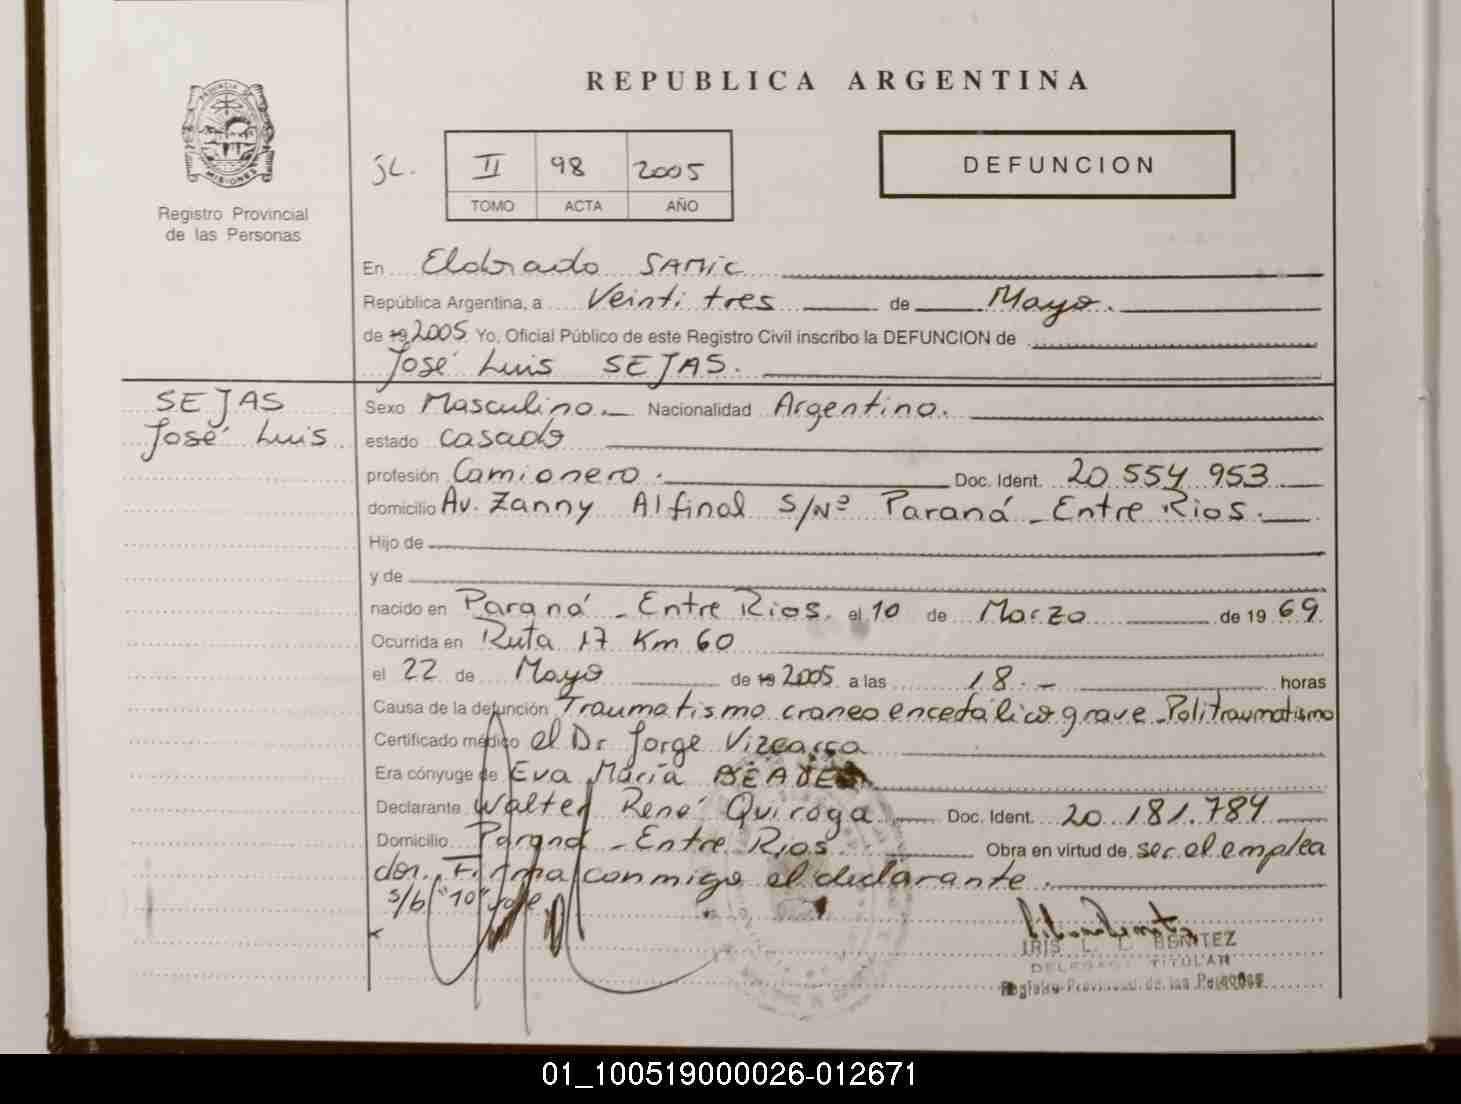 REPUBLICA ARGENTINA
PROVINCIA DE
MISIONES
Registro Provincial
de las Personas
JL.
II 98 2005
TOMO ACTA AÑO
DEFUNCION
En Eldorado SAMIC
República Argentina, a Veinti tres de Mayo.
de 19 2005 Yo, Oficial Público de este Registro Civil inscribo la DEFUNCION de
José Luis SEJAS.
SEJAS
José Luis
Sexo Masculino. Nacionalidad Argentino.
estado casado
profesión Camionero. Doc. Ident. 20.554.953
domicilio Av. Zanny Al final S/Nº Paraná - Entre Rios.
Hijo de
y de
nacido en Paraná - Entre Rios. el 10 de Marzo de 19 69
Ocurrida en Ruta 17 Km 60
el 22 de Mayo de 19 2005 a las 18.- horas
Causa de la defunción Traumatismo craneo encefálico grave - Politraumatismo
Certificado médico el Dr Jorge Vizcarra
Era cónyuge de Eva María
Declarante Walter René Quiroga Doc. Ident. 20.181.784
Domicilio Paraná - Entre Rios Obra en virtud de ser el emplea
dor. Firma conmigo el declarante.
s/b "10" vale
IRIS L. L. BENITEZ
DELEGADA TITULAR
Registro Provincial de las Personas
01_100519000026-012671